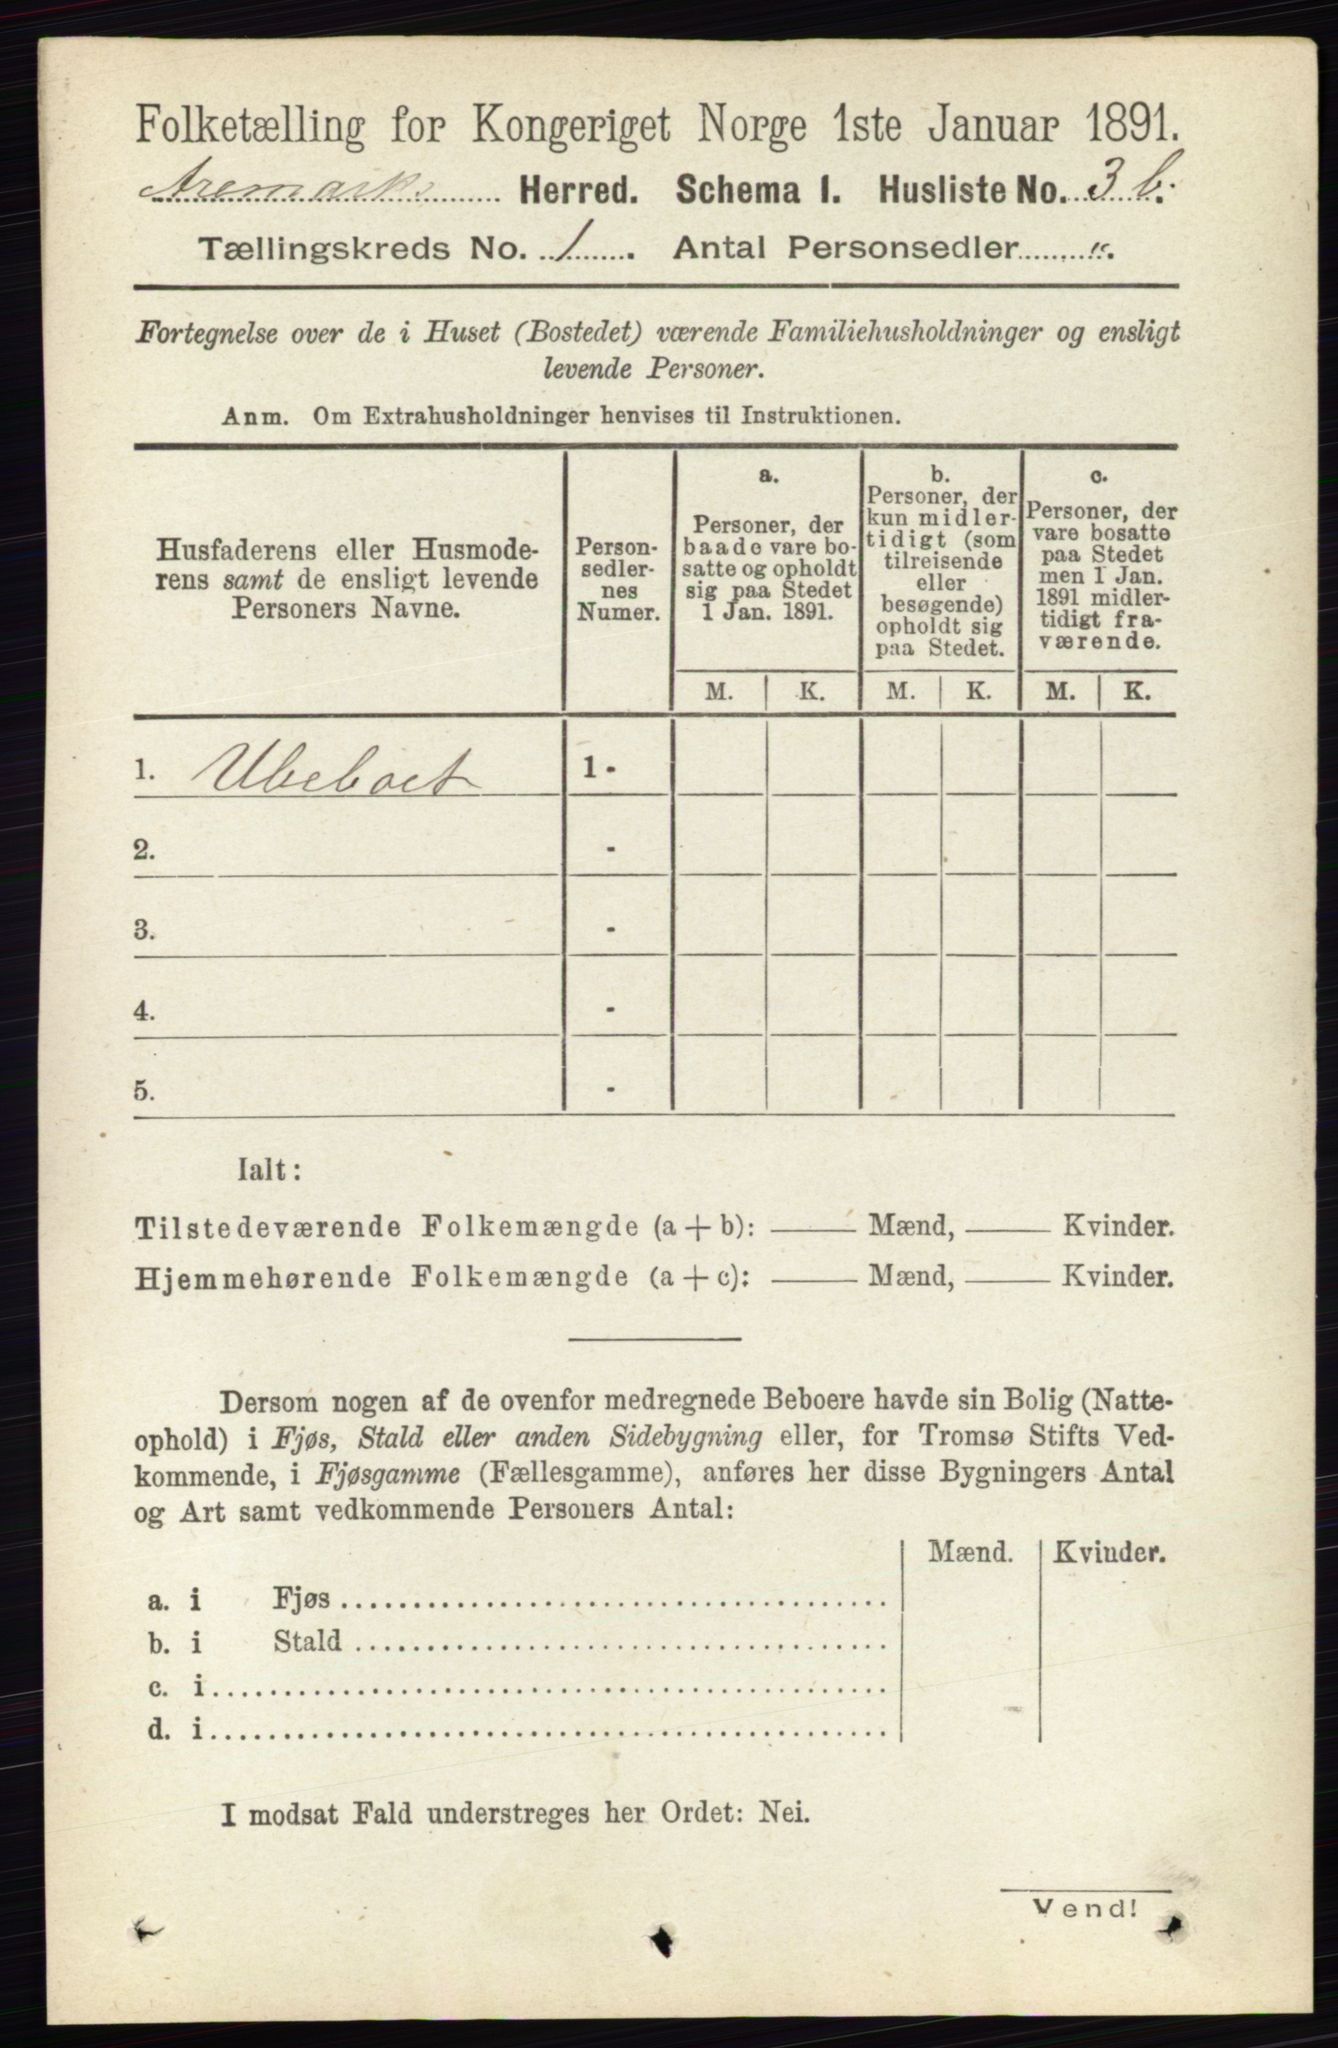 Folketælling for Kongeriget Norge 1ste Januar 1891.
Aremarks Herred. Schema 1. Husliste No. 3 b.
Tællingskreds No. 1. Antal Personsedler ........ „.
Fortegnelse over de i Huset (Bostedet) værende Familiehusholdninger og ensligt
levende Personer.
Anm. Om Extrahusholdninger henvises til Instruktionen.
Husfaderens eller Husmode-
rens samt de ensligt levende
Personers Navne.
Person-
sedler-
nes
Numer.
a.
Personer, der
baade vare bo-
satte og opholdt
sig paa Stedet
1 Jan. 1891.
b.
Personer, der
kun midler-
tidigt (som
tilreisende
eller
besøgende)
opholdt sig
paa Stedet.
c.
Personer, der
vare bosatte
paa Stedet
men 1 Jan.
1891 midler-
tidigt fra-
værende.
M. K. M. K. M. K.
1. Ubeboet 1 -
2. -
3. -
4. -
5. -
Ialt:
Tilstedeværende Folkemængde (a + b): —— Mænd, —— Kvinder.
Hjemmehørende Folkemængde (a + c): —— Mænd, —— Kvinder.
Dersom nogen af de ovenfor medregnede Beboere havde sin Bolig (Natte-
ophold) i Fjøs, Stald eller anden Sidebygning eller, for Tromsø Stifts Ved-
kommende, i Fjøsgamme (Fællesgamme), anføres her disse Bygningers Antal
og Art samt vedkommende Personers Antal:
Mænd. Kvinder.
a. i Fjøs ........................................
b. i Stald ........................................
c. i ........................................
d. i ........................................
I modsat Fald understreges her Ordet: Nei.
Vend!